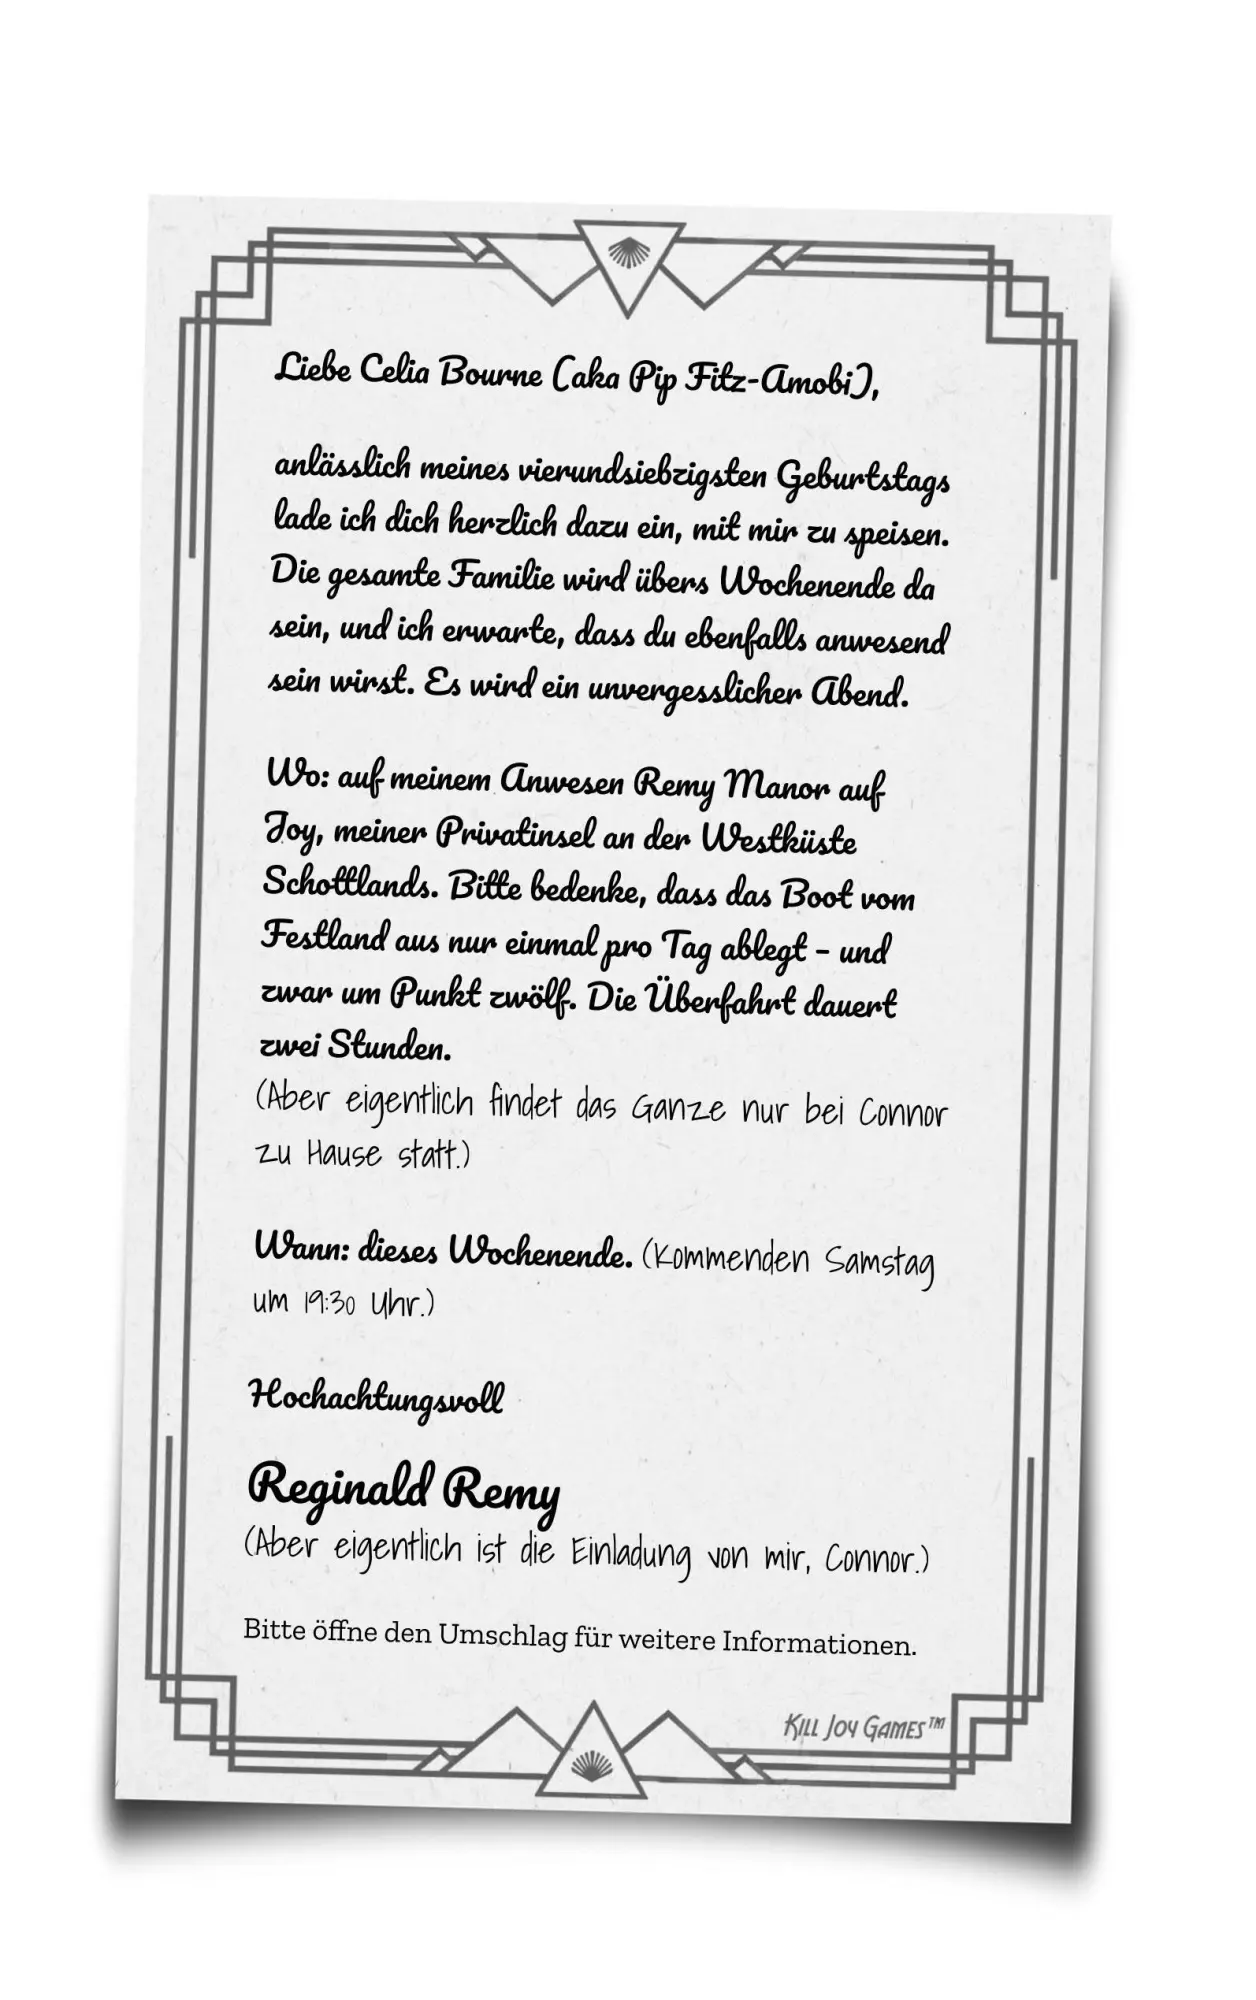 Liebe Celia Bourne (aka Pip Fitz-Amobi),
anlässlich meines vierundsiebzigsten Geburtstags
lade ich dich herzlich dazu ein, mit mir zu speisen.
Die gesamte Familie wird übers Wochenende da
sein, und ich erwarte, dass du ebenfalls anwesend
sein wirst. Es wird ein unvergesslicher Abend.
Wo: auf meinem Anwesen Remy Manor auf
Joy, meiner Privatinsel an der Westküste
Schottlands. Bitte bedenke, dass das Boot vom
Festland aus nur einmal pro Tag ablegt – und
zwar um Punkt zwölf. Die Überfahrt dauert
zwei Stunden.
(Aber eigentlich findet das Ganze nur bei Connor
zu Hause statt.)
Wann: dieses Wochenende. (Kommenden Samstag
um 19:30 Uhr.)
Hochachtungsvoll
Reginald Remy
(Aber eigentlich ist die Einladung von mir, Connor.)
Bitte öffne den Umschlag für weitere Informationen.
Kill Joy Games™